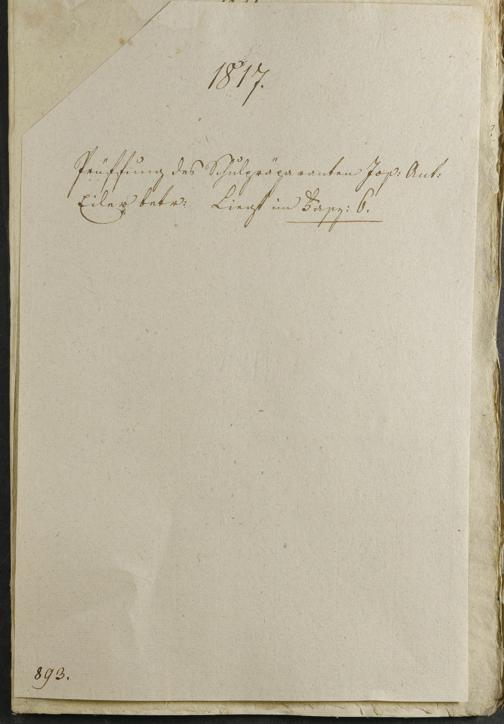 1817.
Prüffung des Schulpräparanten Jos: Ant:
Eiler betr: Liegt im Fasz: 6.
893.